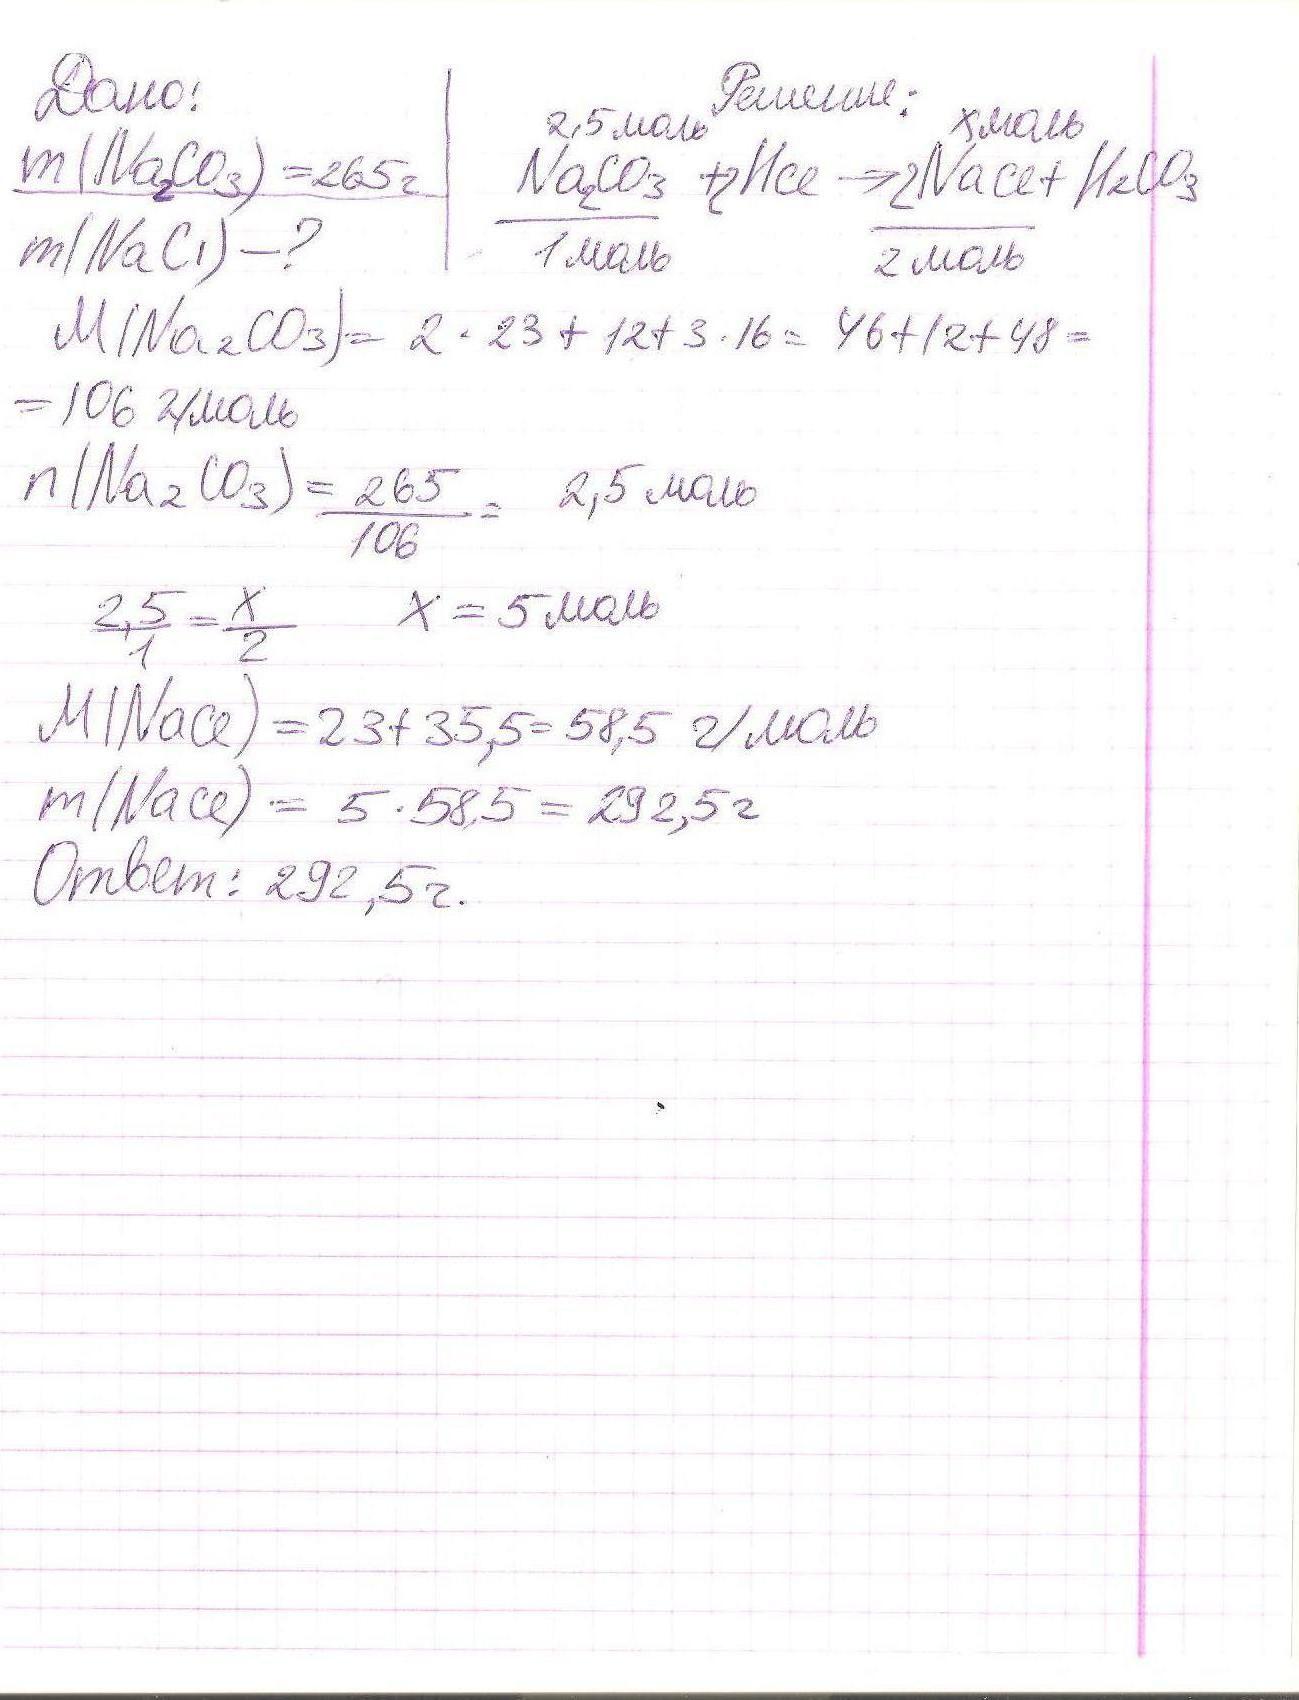 Дано:
m(Na₂CO₃) = 265г
m(NaCl) – ?
Решение:
2,5 моль x моль
Na₂CO₃ + 2HCl → 2NaCl + H₂CO₃
1 моль 2 моль
M(Na₂CO₃) = 2 · 23 + 12 + 3 · 16 = 46 + 12 + 48 =
= 106 г/моль
n(Na₂CO₃) = 265/106 = 2,5 моль
2,5/1 = x/2 x = 5 моль
M(NaCl) = 23 + 35,5 = 58,5 г/моль
m(NaCl) = 5 · 58,5 = 292,5 г
Ответ: 292,5 г.